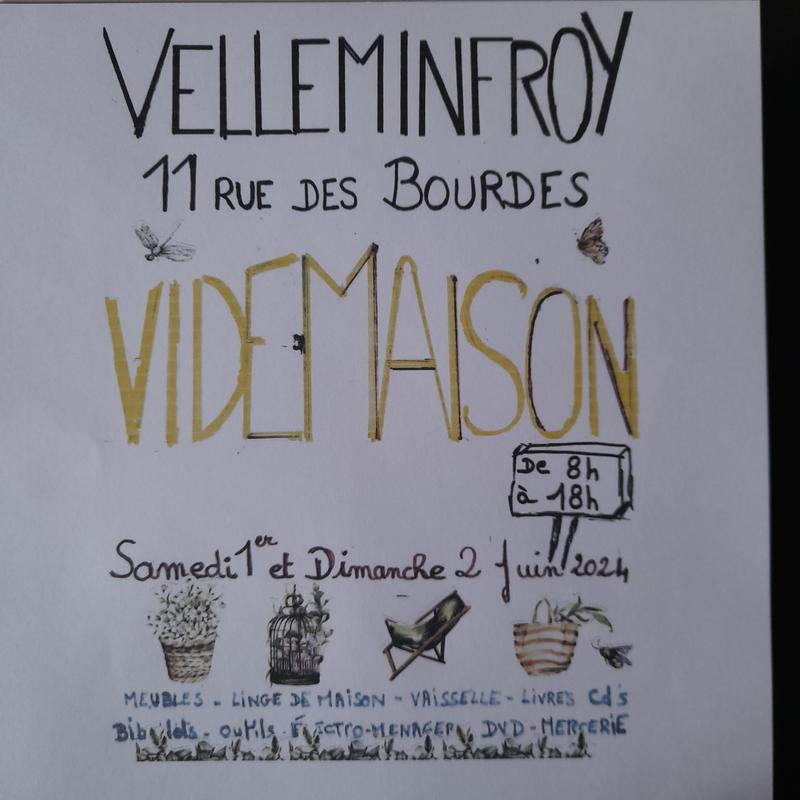 VELLEMINFROY
11 RUE DES BOURDES
VIDEMAISON
De 8h
à 18h
Samedi 1er et Dimanche 2 Juin 2024
MEUBLES - LINGE DE MAISON - VAISSELLE - LIVRES Cd's
Bibelots - Outils - ÉLECTRO-MENAGER, DVD - MERCERIE